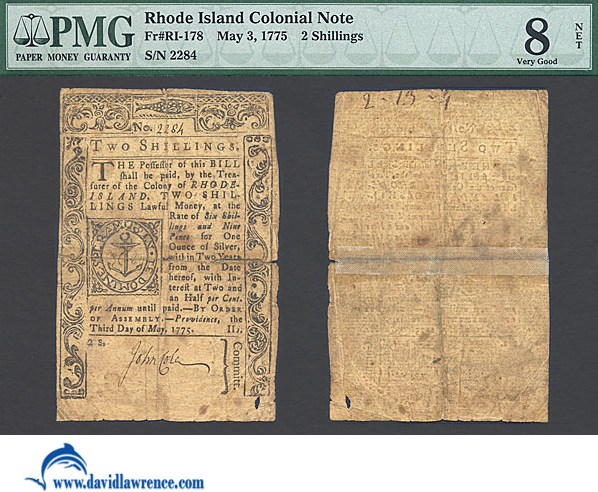 PMG
PAPER MONEY GUARANTY
Rhode Island Colonial Note
Fr#RI-178 May 3, 1775 2 Shillings
S/N 2284
8 NET
Very Good
No. 2284
TWO SHILLINGS.
THE Possessor of this BILL
shall be paid, by the Trea-
surer of the Colony of RHODE-
ISLAND, TWO SHIL-
LINGS Lawful Money, at the
Rate of Six Shil-
lings and Nine
Pence for One
Ounce of Silver,
within Two Years
from the Date
hereof, with In-
terest at Two and
an Half per Cent.
per Annum until paid.—BY ORDER
OF ASSEMBLY.—Providence, the
Third Day of May, 1775. IIs.
2 S.
John Cole
Committe.
2-13-9
www.davidlawrence.com